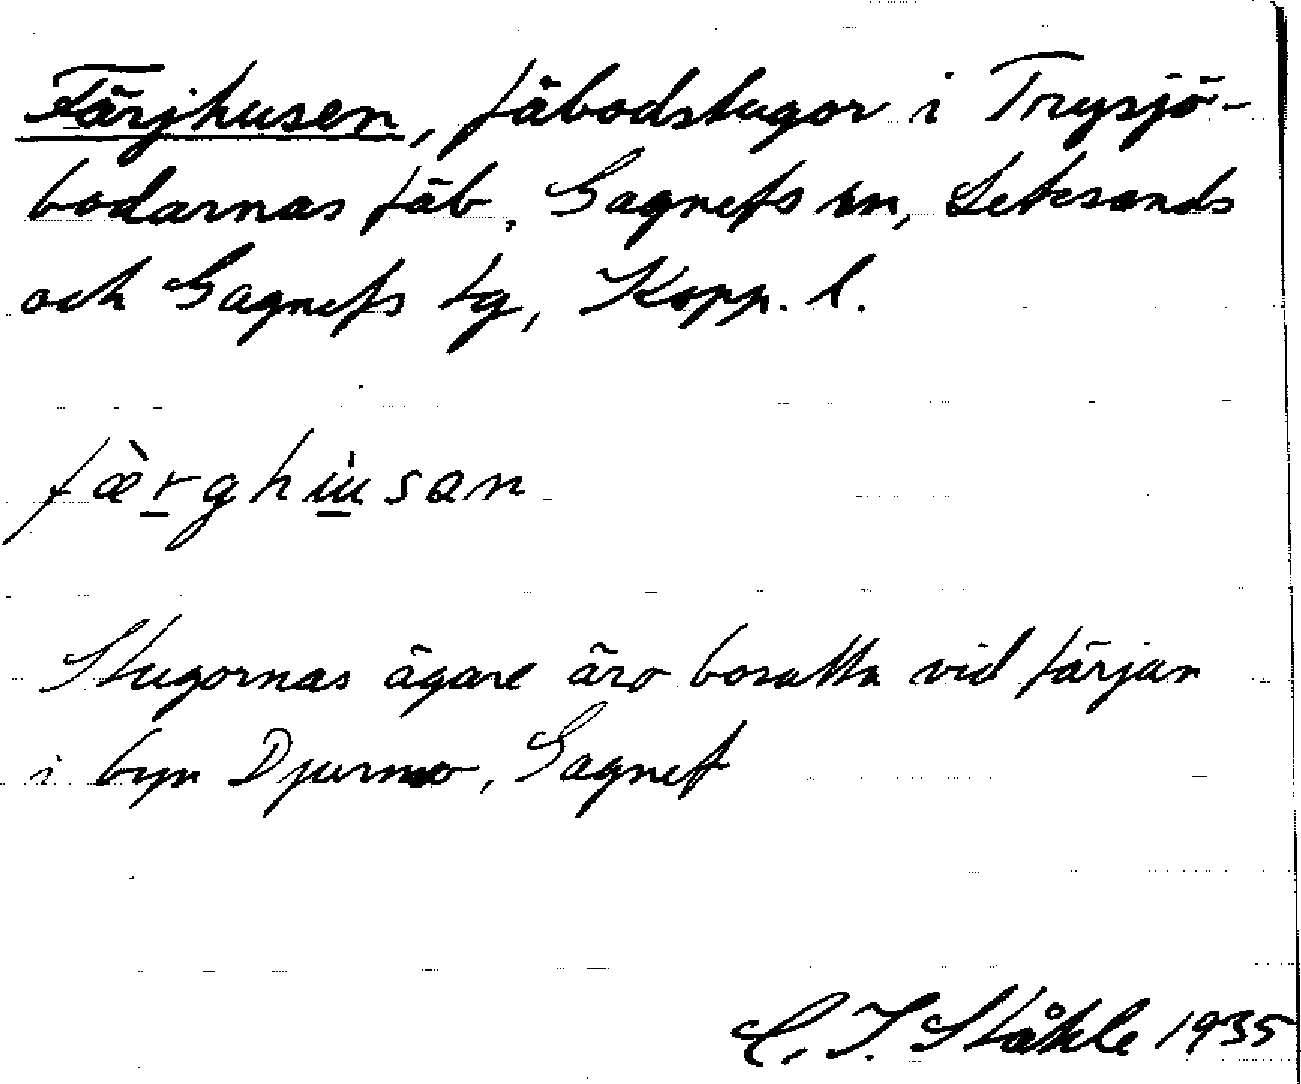 Färjhusen, fäbodstugor i Trysjö-
bodarnas fäb, Gagnefs sn, Leksands
och Gagnefs tg, Kopp. l.
fæ̀rghu̇san
Stugornas ägare äro bosatta vid färjan
i byn Djurmo, Gagnef
C. I. Ståhle 1935